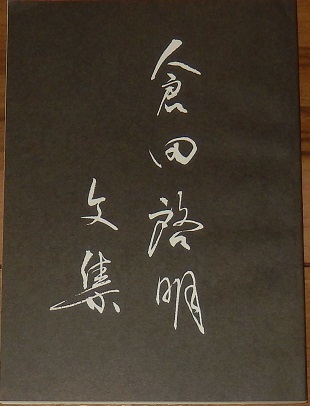 倉田啓明
文集